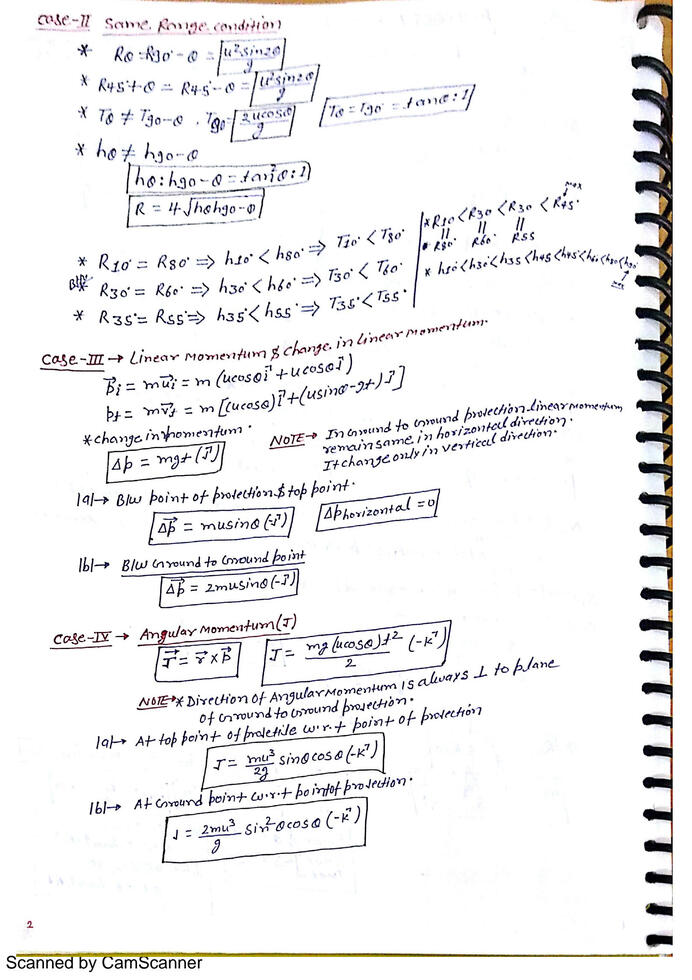 Case-II Same Range condition
* Rθ = R90°-θ = u²sin2θ/g
* R45°+θ = R45°-θ = u²sin2θ/g
* Tθ ≠ T90-θ . T90 = 2ucosθ/g Tθ = T90° = tanθ : 1
* hθ ≠ h90-θ
hθ : h90-θ = tan²θ : 1
R = 4√hθh90-θ
* R10° = R80° ⇒ h10° < h80° ⇒ T10° < T80°
* R30° = R60° ⇒ h30° < h60° ⇒ T30° < T60°
* R35° = R55° ⇒ h35° < h55° ⇒ T35° < T55°
max
* R10° < R30 < R30 < R45°
|| || ||
R80° R60° R55
* h10° < h30° < h35 < h45 < h45° <
Case-III → Linear Momentum & change in Linear Momentum.
p⃗i = mu⃗i = m (ucosθi⃗ + ucosθJ⃗)
pf = mv⃗f = m [(ucosθ)i⃗ + (usinθ-gt)J⃗]
* change in momentum.
Δp = mgt (J⃗)
NOTE → In Ground to Ground projection linear Momentum
remain same in horizontal direction.
It change only in vertical direction.
|a|→ B|w point of projection & top point.
Δp⃗ = musinθ(-J⃗) Δphorizontal = 0
|b|→ B|w Ground to Ground point
Δp⃗ = 2musinθ(-J⃗)
Case-IV → Angular Momentum (J)
J⃗ = r⃗ x p⃗ J = mg(ucosθ)t²/2 (-k⃗)
NOTE→* Direction of Angular Momentum is always ⊥ to plane
of Ground to Ground projection.
|a|→ At top point of projetile w.r.t point of projection
J = mu³/2g sinθcosθ(-k⃗)
|b|→ At Ground point w.r.t point of projection.
J = 2mu³/g sin²θcosθ(-k⃗)
2
Scanned by CamScanner